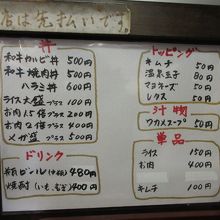 店は先払いです
丼
和牛カルビ丼 500円
和牛焼肉丼 500円
ハラミ丼 600円
ライス大盛 プラス 100円
お肉1.5倍 プラス 200円
お肉2倍 プラス 400円
メガ盛 プラス 500円
ドリンク
瓶ビール(中瓶) 480円
焼酎(いも、麦) 400円
トッピング
キムチ 50円
温泉玉子 80円
マヨネーズ 50円
レタス 50円
汁物
ワカメスープ 50円
単品
ライス 150円
お肉 400円
キムチ 100円